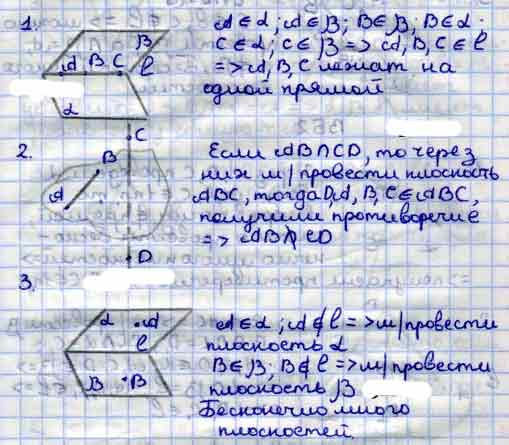 1.
β
A B C l
α
A∈α; A∈β; B∈β; B∈α.
C∈α; C∈β => A, B, C ∈ l
=> A, B, C лежат на
одной прямой
2.
C
B
A
D
Если AB∩CD, то через
них м/провести плоскость
ABC, тогда D, A, B, C ∈ ABC,
получили противоречие
=> AB∩̸CD
3.
α A
l
β B
A∈α; A∉l => м/провести
плоскость α
B∈β; B∉l => м/провести
плоскость β
Бесконечно много
плоскостей.